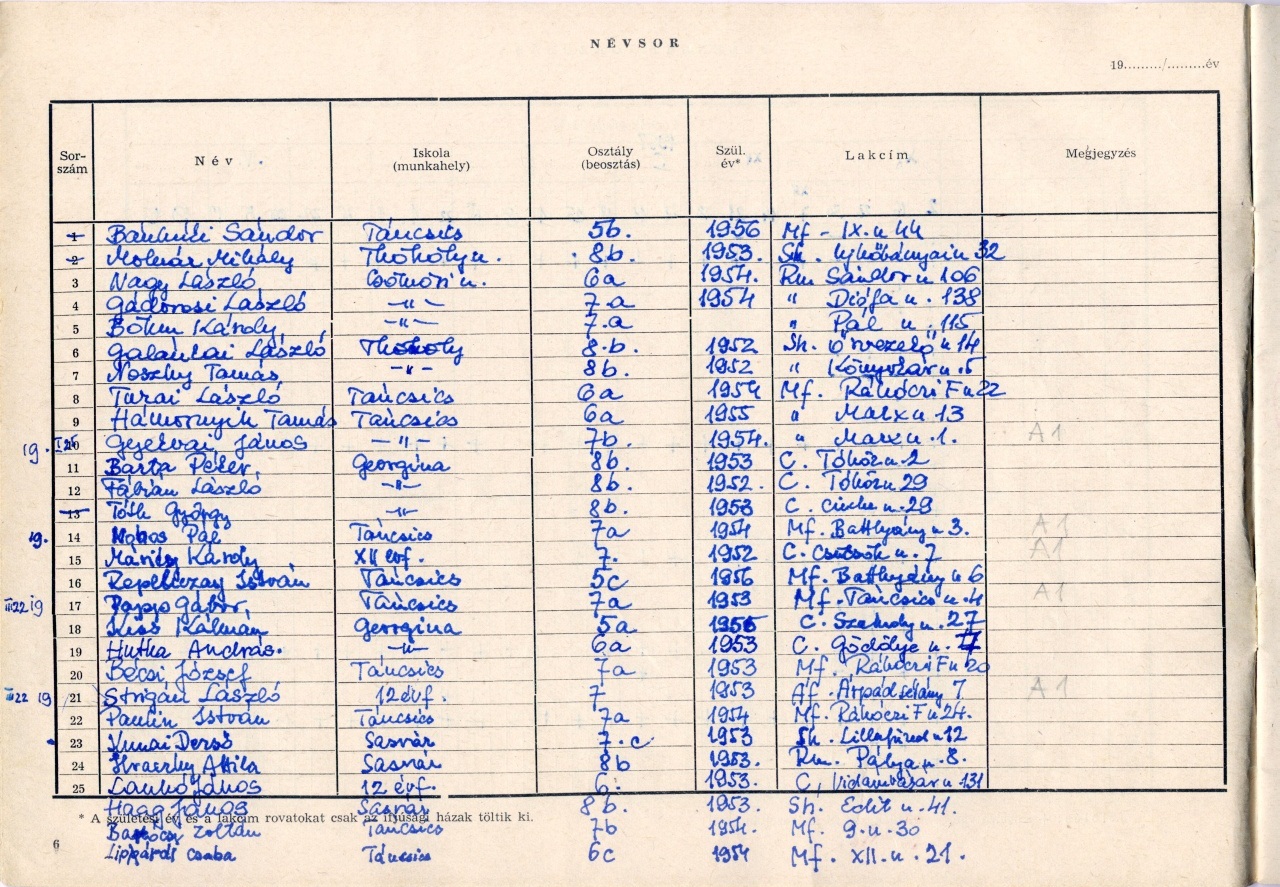 NÉVSOR
19........./.........év
Sor-szám Név Iskola (munkahely) Osztály (beosztás) Szül. év* Lakcím Megjegyzés
1 Sándor Táncsics 5b. 1956 Mf - IX. u 44
2 Molnár Mihály Thököly u. 8b. 1953. Sh. Ujkőbányai u 32
3 Nagy László Csömöri u. 6a 1954. Rm Sándor u 106
4 Gádorosi László -"- 7.a 1954 " Diófa u. 138
5 Böhm Károly -"- 7.a " Pál u. 115
6 Galántai László Thököly 8.b. 1952 Sh. Őrvezető u 14
7 Noszky Tamás -"- 8b. 1952 " Könyvtár u. 5
8 Turai László Táncsics 6a 1954 Mf. Rákóczi F u 22
9 Hámornyik Tamás Táncsics 6a 1955 " Marx u 13
19. 10 János -"- 7b. 1954. " Marx u. 1. A1
11 Barta Péter, Georgina 8b. 1953 C. u. 2
12 Fábián László -"- 8b. 1952. C. 29
13 Tóth György -"- 8b. 1953 C. u. 29
19. 14 Pál Táncsics 7a 1954 Mf. Batthyány u. 3. A1
15 Károly XII évf. 7. 1952 C. u. 7 A1
16 István Táncsics 5c 1956 Mf. Batthyány u 6
III 22 19 17 Papp Gábor, Táncsics 7a 1953 Mf. Táncsics u. 4 A1
18 Kiss Kálmán Georgina 5a 1956 C. u. 27
19 Hutka András. -"- 6a 1953 C. Gödöllye u. 7
20 Bécsi József Táncsics 7a 1953 Mf. Rákóczi F u 20
III 22 19 21 Strigán László 12 évf. 7 1953 Af. Árpád sétány 7 A1
22 Paulin István Táncsics 7a 1954 Mf. Rákóczi F u 24.
23 Dezső Sasvár 7.c 1953 Sh. Lillafüred u 12
24 Attila Sasvár 8b 1953. Rm. Pálya u. 8.
25 Lankó János 12 évf. 6. 1953. C, Vidámvásár u. 131
Haag János Sasvár 8b. 1953. Sh. Edit u. 41.
* A születési év és a lakcím rovatokat csak az ifjúsági házak töltik ki.
Zoltán Táncsics 7b 1954. Mf. 9. u. 30
6
Csaba Táncsics 6c 1954 Mf. XII. u. 21.